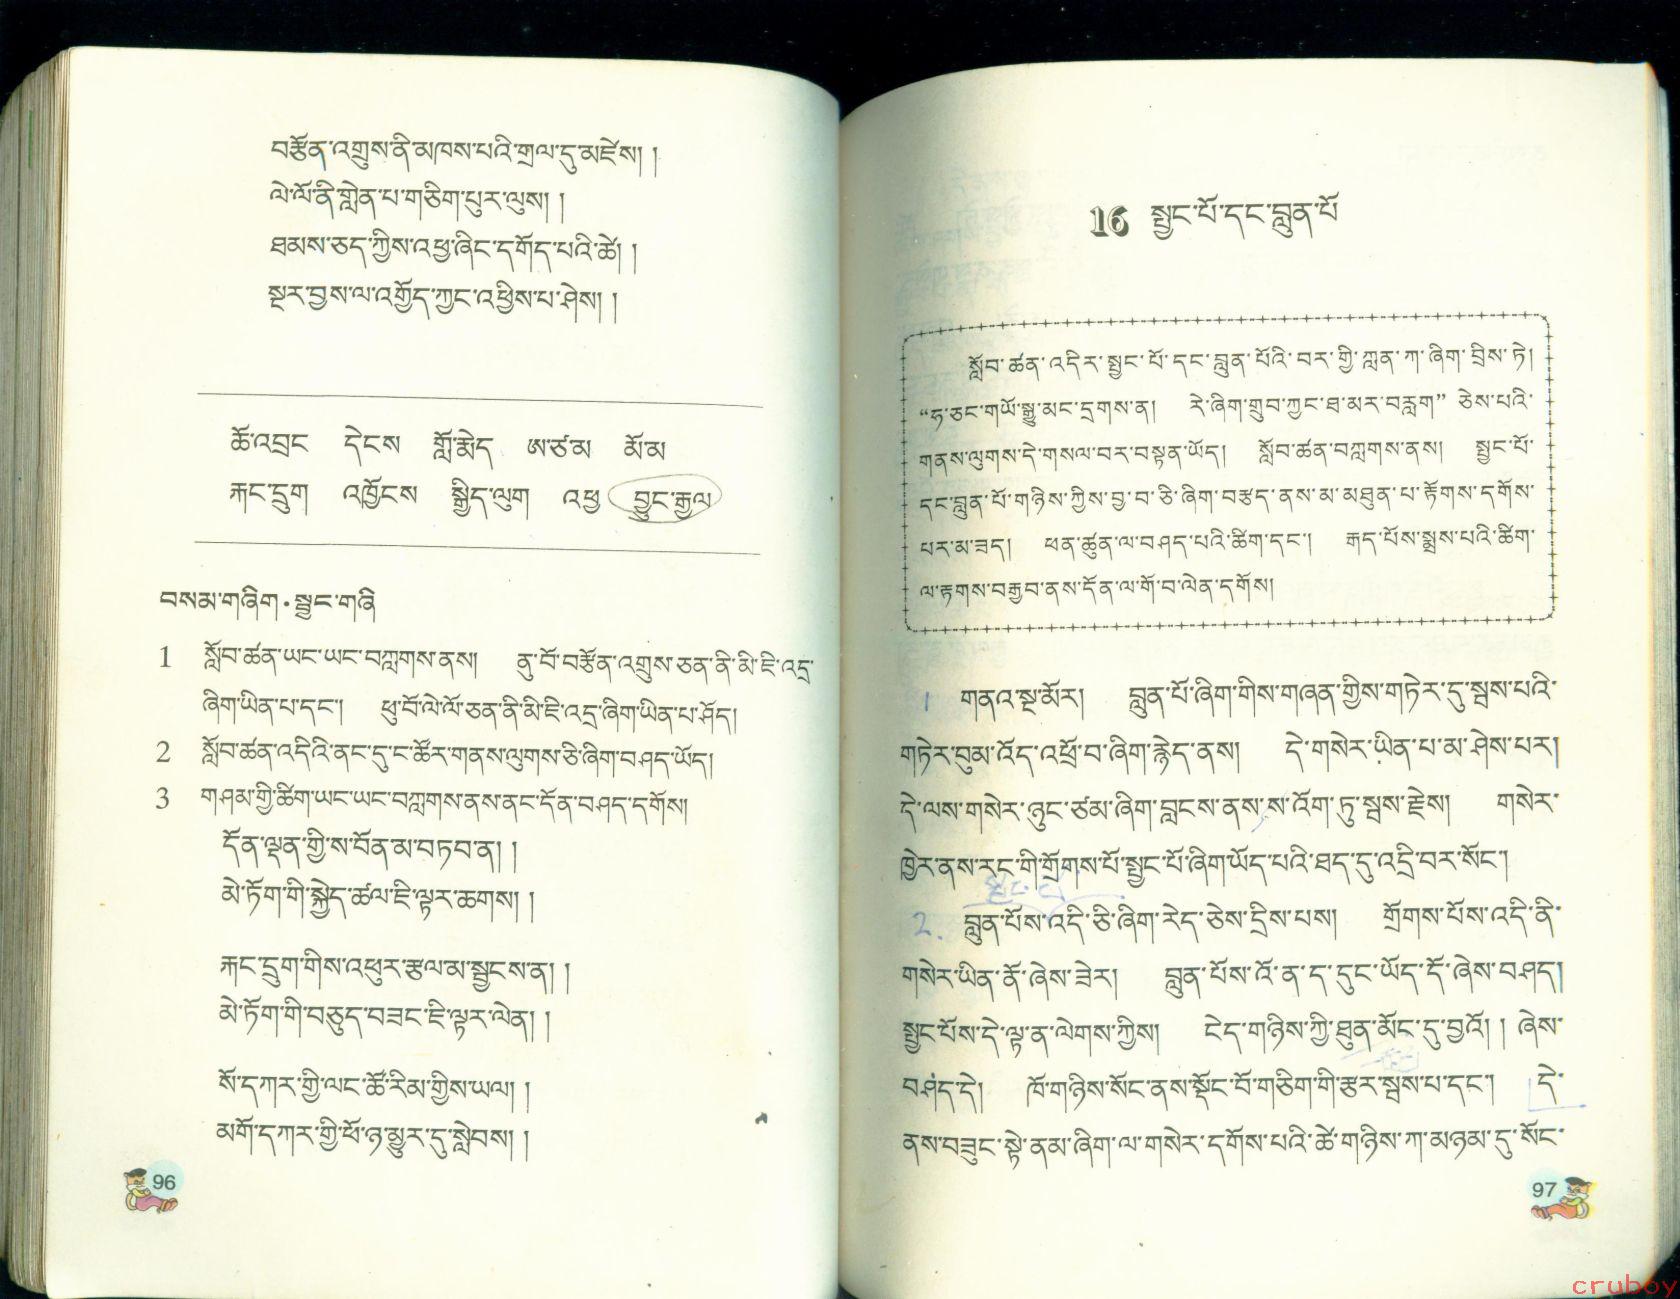 བརྩོན་འགྲུས་ནི་མཁས་པའི་གྲལ་དུ་མཛེས། །
ལེ་ལོ་ནི་གླེན་པ་གཅིག་པུར་ལུས། །
ཐམས་ཅད་ཀྱིས་འཕྱ་ཞིང་དགོད་པའི་ཚེ། །
སྔར་བྱས་ལ་འགྱོད་ཀྱང་འཕྱིས་པ་ཤེས། །
ཚོ་འབྲང དེངས གློ་རྨེད ཨ་ཙམ མོ་མ
རྐང་དྲུག འཁྱོངས སྒྱིད་ལུག འཕྱ བྱུང་རྒྱལ
བསམ་གཞིག·སྦྱང་གཞི
1 སློབ་ཚན་ཡང་ཡང་བཀླགས་ནས། ནུ་བོ་བརྩོན་འགྲུས་ཅན་ནི་མི་ཇི་འདྲ་
ཞིག་ཡིན་པ་དང་། ཕུ་བོ་ལེ་ལོ་ཅན་ནི་མི་ཇི་འདྲ་ཞིག་ཡིན་པ་ཤོད།
2 སློབ་ཚན་འདིའི་ནང་དུ་ང་ཚོར་གནས་ལུགས་ཅི་ཞིག་བཤད་ཡོད།
3 གཤམ་གྱི་ཚིག་ཡང་ཡང་བཀླགས་ནས་ནང་དོན་བཤད་དགོས།
དོན་ལྡན་གྱི་ས་བོན་མ་བཏབ་ན། །
མེ་ཏོག་གི་སྐྱེད་ཚལ་ཇི་ལྟར་ཆགས། །
རྐང་དྲུག་གིས་འཕུར་རྩལ་མ་སྦྱངས་ན། །
མེ་ཏོག་གི་བཅུད་བཟང་ཇི་ལྟར་ལེན། །
སོ་དཀར་གྱི་ལང་ཚོ་རིམ་གྱིས་ཡལ། །
མགོ་དཀར་གྱི་ཕོ་ཉ་མྱུར་དུ་སླེབས། །
96
16 སྤྱང་པོ་དང་བླུན་པོ
སློབ་ཚན་འདིར་སྤྱང་པོ་དང་བླུན་པོའི་བར་གྱི་ཀླན་ཀ་ཞིག་བྲིས་ཏེ།
“ཧ་ཅང་གཡོ་སྒྱུ་མང་དྲགས་ན། རེ་ཞིག་གྲུབ་ཀྱང་ཐ་མར་བརླག” ཅེས་པའི་
གནས་ལུགས་དེ་གསལ་བར་བསྟན་ཡོད། སློབ་ཚན་བཀླགས་ནས། སྤྱང་པོ་
དང་བླུན་པོ་གཉིས་ཀྱིས་བྱ་བ་ཅི་ཞིག་བརྩད་ནས་མ་མཐུན་པ་རྟོགས་དགོས་
པར་མ་ཟད། ཕན་ཚུན་ལ་བཤད་པའི་ཚིག་དང་། རྒད་པོས་སྨྲས་པའི་ཚིག་
ལ་རྟགས་བརྒྱབ་ནས་དོན་ལ་གོ་བ་ལེན་དགོས།
1 གནའ་སྔ་མོར། བླུན་པོ་ཞིག་གིས་གཞན་གྱིས་གཏེར་དུ་སྦས་པའི་
གཏེར་བུམ་འོད་འཕྲོ་བ་ཞིག་རྙེད་ནས། དེ་གསེར་ཡིན་པ་མ་ཤེས་པར།
དེ་ལས་གསེར་ཉུང་ཙམ་ཞིག་བླངས་ནས་ས་འོག་ཏུ་སྦས་རྗེས། གསེར་
ཁྱེར་ནས་རང་གི་གྲོགས་པོ་སྤྱང་པོ་ཞིག་ཡོད་པའི་ཐད་དུ་འདྲི་བར་སོང་།
2. བླུན་པོས་འདི་ཅི་ཞིག་རེད་ཅེས་དྲིས་པས། གྲོགས་པོས་འདི་ནི་
གསེར་ཡིན་ནོ་ཞེས་ཟེར། བླུན་པོས་འོ་ན་ད་དུང་ཡོད་དོ་ཞེས་བཤད།
སྤྱང་པོས་དེ་ལྟ་ན་ལེགས་ཀྱིས། ངེད་གཉིས་ཀྱི་ཐུན་མོང་དུ་བྱའོ། །ཞེས་
བཤད་དེ། ཁོ་གཉིས་སོང་ནས་སྡོང་བོ་གཅིག་གི་རྩར་སྦས་པ་དང་། དེ་
ནས་བཟུང་སྟེ་ནམ་ཞིག་ལ་གསེར་དགོས་པའི་ཚེ་གཉིས་ཀ་མཉམ་དུ་སོང་
97
cruboy